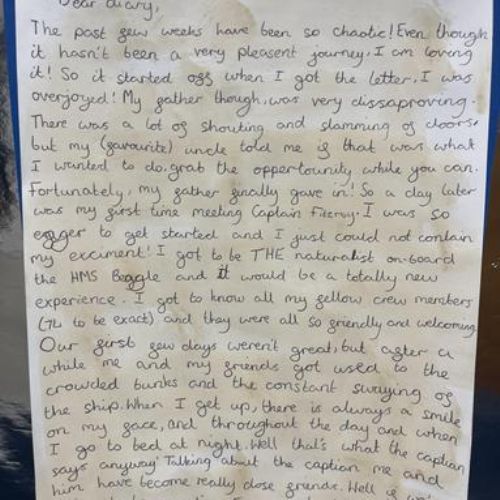 Dear diary,
The past few weeks have been so chaotic! Even though
it hasn't been a very pleasent journey, I am loving
it! So it started off when I got the letter, I was
overjoyed! My father though, was very dissaproving.
There was a lot of shouting and slamming of doors,
but my (favourite) uncle told me if that was what
I wanted to do, grab the oppertounity while you can.
Fortunately, my father finally gave in! So a day later
was my first time meeting Captain Fitzroy. I was so
egger to get started and I just could not contain
my exciment! I got to be THE naturalist on-board
the HMS Beagle and it would be a totally new
experience. I got to know all my fellow crew members
(74 to be exact) and they were all so friendly and welcoming
Our first few days weren't great, but after a
while me and my friends got used to the
crowded bunks and the constant swaying of
the ship. When I get up, there is always a smile
on my face, and throughout the day and when
I go to bed at night. Well that's what the captian
says anyway! Talking about the captian me and
him have become really close friends. Well